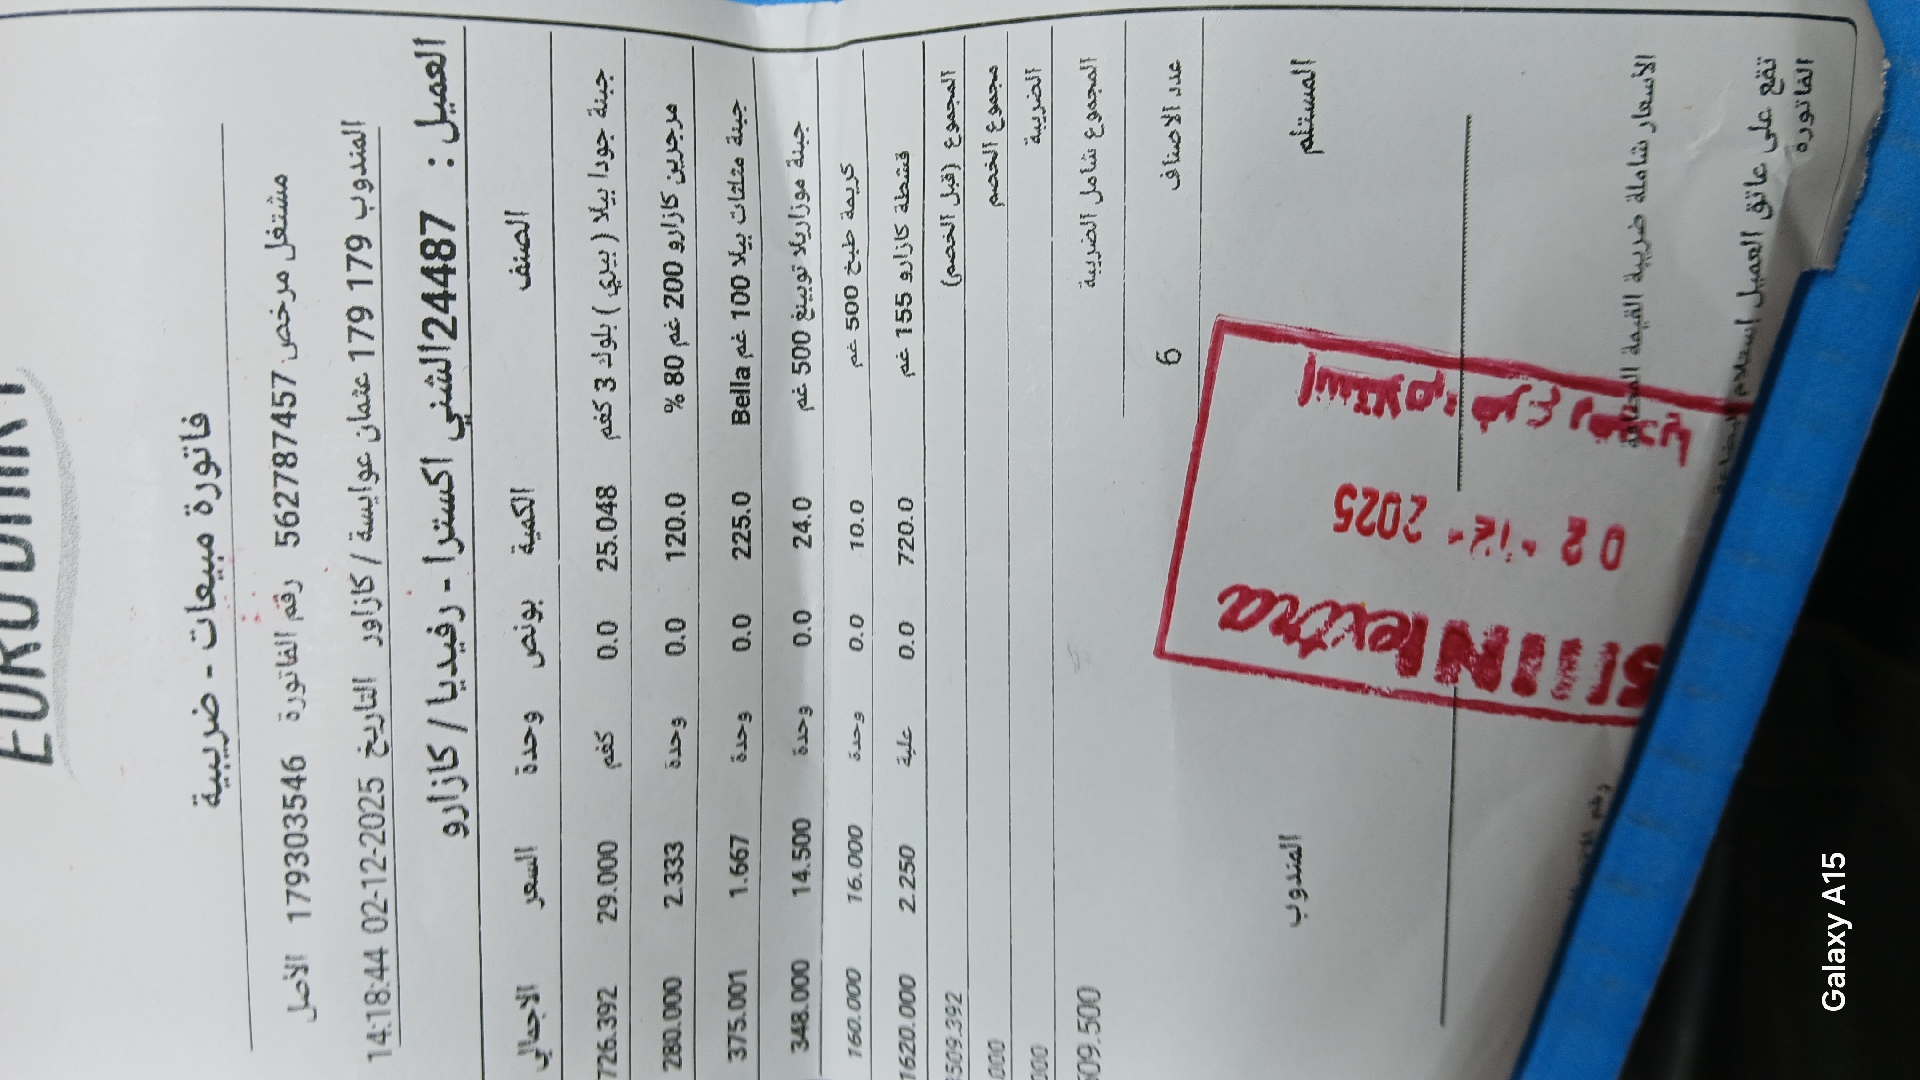 فاتورة مبيعات - ضريبية
مشتغل مرخص 562787457 رقم الفاتورة 179303546 الاصل
المندوب 179 179 عثمان عوايسة / كازاور التاريخ 02-12-2025 14:18:44
العميل : 24487الشني اكسترا - رفيديا / كازارو
الصنف الكمية بونص وحدة السعر الاجمالي
جبنة جودا بيلا ( بيري ) بلوك 3 كغم 25.048 0.0 كغم 29.000 726.392
مرجرين كازارو 200 غم 80 % 120.0 0.0 وحدة 2.333 280.000
جبنة مثلثات بيلا 100 غم Bella 225.0 0.0 وحدة 1.667 375.001
جبنة موزاريلا توبينغ 500 غم 24.0 0.0 وحدة 14.500 348.000
كريمة طبخ 500 غم 10.0 0.0 وحدة 16.000 160.000
قشطة كازارو 155 غم 720.0 0.0 علبة 2.250 1620.000
المجموع (قبل الخصم) 509.392
مجموع الخصم 000
الضريبة 000
المجموع شامل الضريبة 509.500
عدد الاصناف 6
المستلم المندوب
استلام: فرع رفيديا
02 - 12 - 2025
extra
الأسعار شاملة ضريبة القيمة المضافة
تقع على عاتق العميل استلام
الفاتورة
Galaxy A15